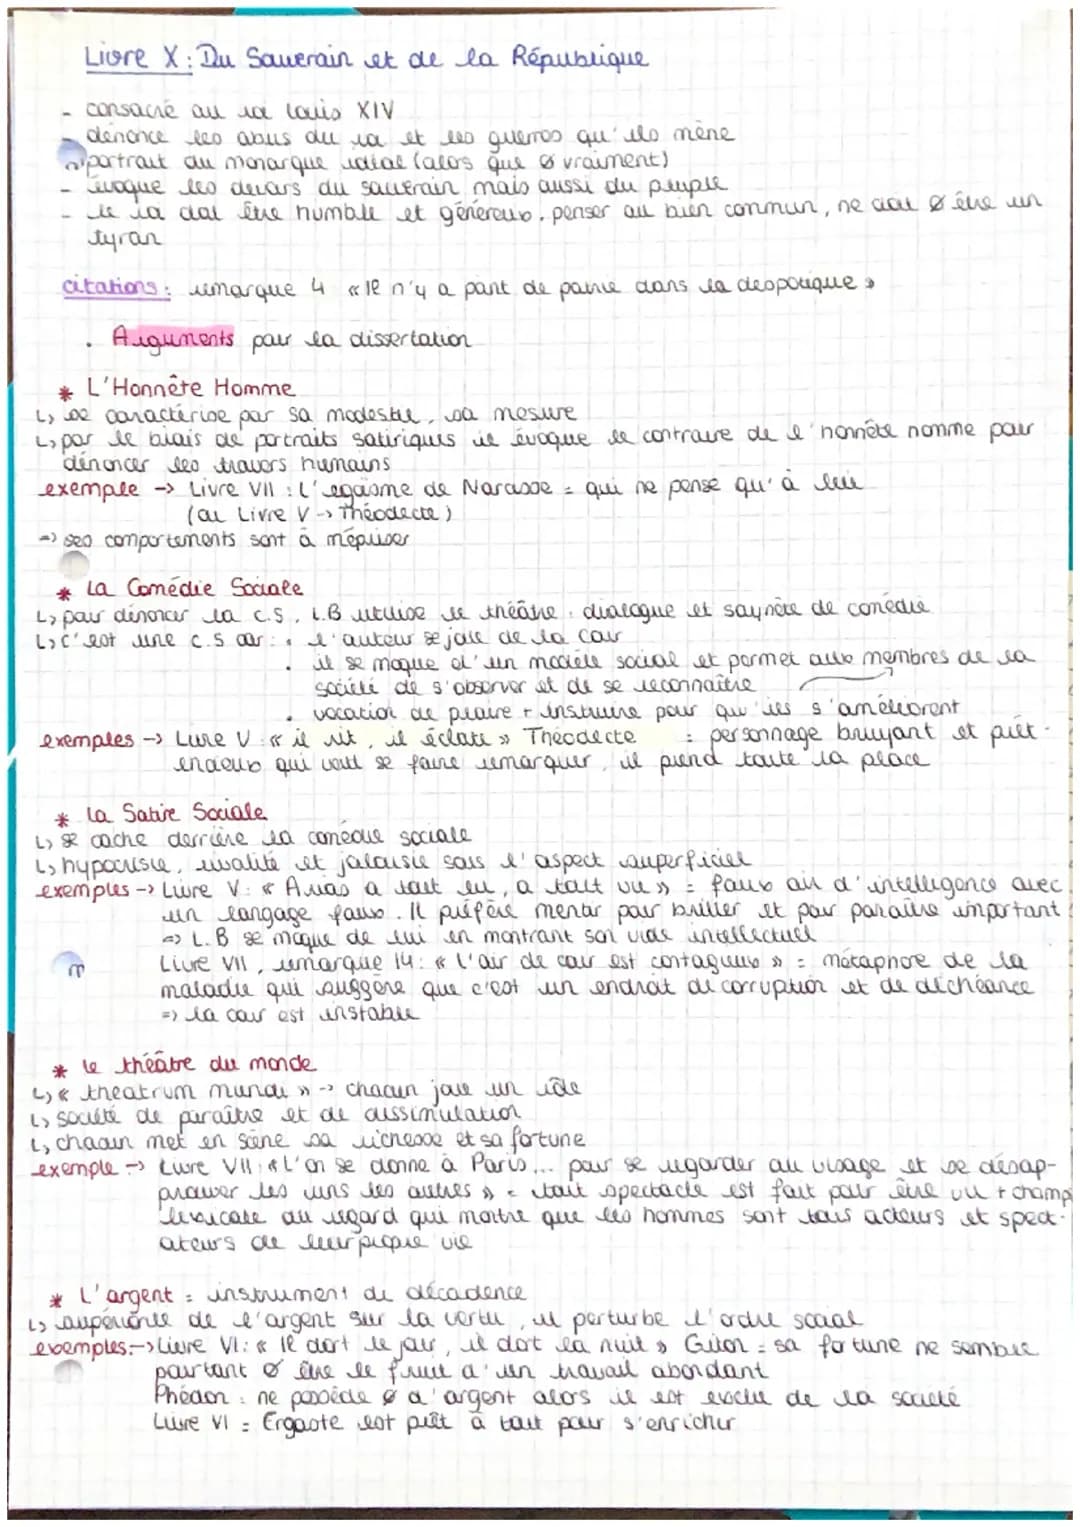 Livre X : Du Souverain et de la République
- consacré au roi Louis XIV
- dénonce les abus du roi et les guerres qu'ils mène
- portrait du monarque idéal (alors que ø vraiment)
- évoque les devoirs du souverain mais aussi du peuple
- le roi doit être humble et généreux, penser au bien commun, ne doit ø être un
tyran
citations : remarque 4 « Il n'y a point de patrie dans le despotique »
• Arguments pour la dissertation
* L'Honnête Homme
↳ se caractérise par sa modestie, sa mesure
↳ par le biais de portraits satiriques il évoque le contraire de l'honnête homme pour
dénoncer les travers humains
exemple → Livre VII : L'égoïsme de Narcisse = qui ne pense qu'à lui
(ou Livre V → Théodecte)
=> ses comportements sont à mépriser
* La Comédie Sociale
↳ pour dénoncer la c.s, L.B utilise le théâtre : dialogue et saynète de comédie
↳ c'est une c.s car : • l'auteur se joue de la cour
• il se moque d'un modèle social et permet aux membres de la
société de s'observer et de se reconnaître
• vocation de plaire + instruire pour qu'ils s'améliorent
exemples → Livre V : « il rit, il éclate » Théodecte = personnage bruyant et prét-
endeux qui veut se faire remarquer, il prend toute la place
* La Satire Sociale
↳ se cache derrière la comédie sociale
↳ hypocrisie, rivalité et jalousie sous l'aspect superficiel
exemples → Livre V : « Arrias a tout lu, a tout vu » = faux air d'intelligence avec
un langage faux. Il préfère mentir pour briller et pour paraître important
=> L.B se moque de lui en montrant son vide intellectuel
Livre VII, remarque 14 : « L'air de cour est contagieux » = métaphore de la
maladie qui suggère que c'est un endroit de corruption et de déchéance
=> la cour est instable
* le théâtre du monde
↳ « theatrum mundi » -> chacun joue un rôle
↳ société de paraître et de dissimulation
↳ chacun met en scène sa richesse et sa fortune
exemple → Livre VII : « L'on se donne à Paris... pour se regarder au visage et se désap-
prouver les uns les autres » = tout spectacle est fait pour être vu + champ
lexicale du regard qui montre que les hommes sont tous acteurs et spect-
ateurs de leur propre vie
* L'argent = instrument de décadence
↳ supériorité de l'argent sur la vertu, il perturbe l'ordre social
exemples → Livre VI : « Il dort le jour, il dort la nuit » Giton = sa fortune ne semble
pourtant ø être le fruit d'un travail abondant
Phédon : ne possède ø d'argent alors il est exclu de la société
Livre VI = Ergaste est prêt à tout pour s'enrichir